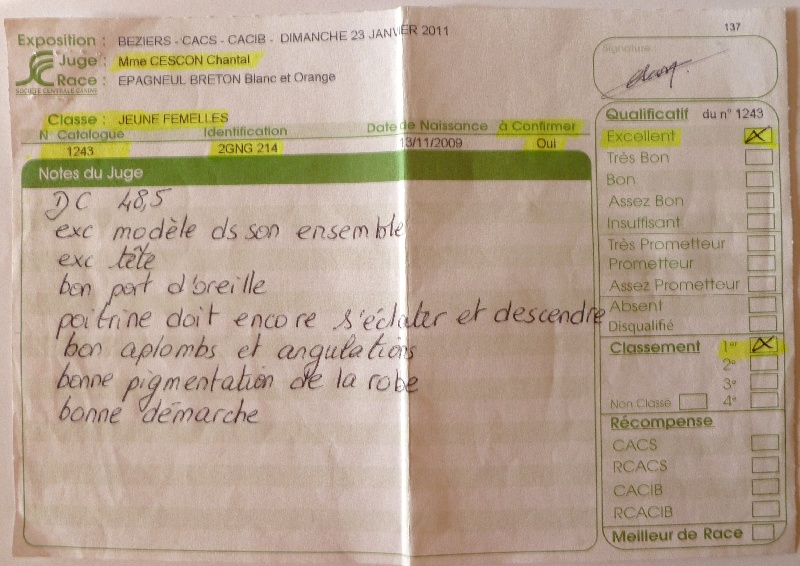 137
Exposition : BEZIERS - CACS - CACIB - DIMANCHE 23 JANVIER 2011
Juge : Mme CESCON Chantal
Race : EPAGNEUL BRETON Blanc et Orange
SOCIÉTÉ CENTRALE CANINE
Signature
Classe : JEUNE FEMELLES
N Catalogue Identification Date de Naissance à Confirmer
1243 2GNG 214 13/11/2009 Oui
Notes du Juge
DC 48,5
exc modèle ds son ensemble
exc tête
bon port d'oreille
poitrine doit encore s'éclater et descendre
bon aplombs et angulations
bonne pigmentation de la robe
bonne démarche
Qualificatif du n° 1243
Excellent X
Très Bon
Bon
Assez Bon
Insuffisant
Très Prometteur
Prometteur
Assez Prometteur
Absent
Disqualifié
Classement 1er X
2e
3e
Non Classé 4e
Récompense
CACS
RCACS
CACIB
RCACIB
Meilleur de Race